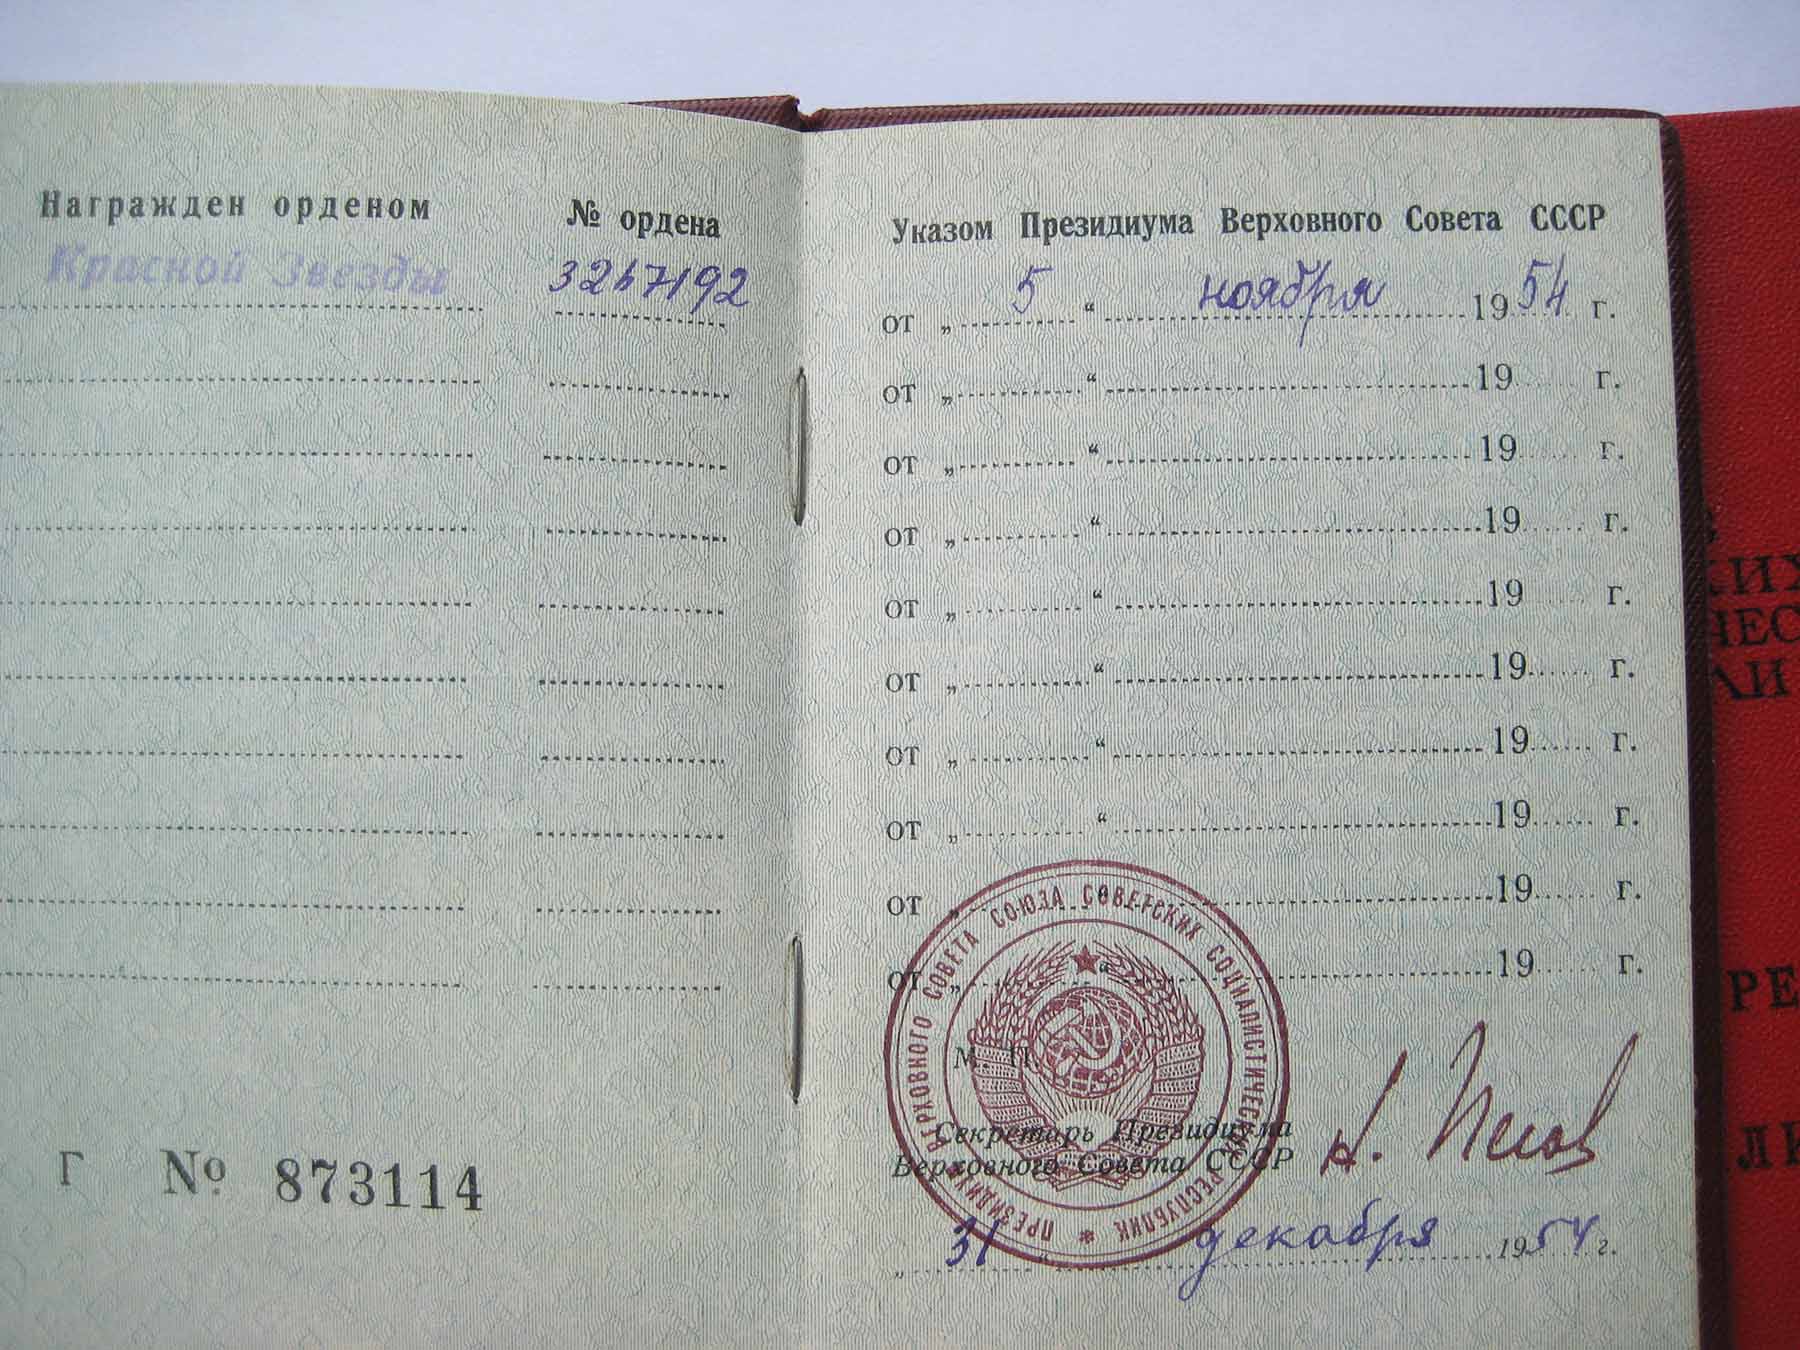 Награжден орденом
№ ордена
Красной Звезды
3267192
Г № 873114
Указом Президиума Верховного Совета СССР
от „ 5 “ ноября 1954 г.
от „ “ 19 г.
от „ “ 19 г.
от „ “ 19 г.
от „ “ 19 г.
от „ “ 19 г.
от „ “ 19 г.
от „ “ 19 г.
от „ “ 19 г.
от „ “ 19 г.
М. П.
ПРЕЗИДИУМ ВЕРХОВНОГО СОВЕТА СОЮЗА СОВЕТСКИХ СОЦИАЛИСТИЧЕСКИХ РЕСПУБЛИК
Секретарь Президиума
Верховного Совета СССР
Н. Пегов
„ 31 “ декабря 1954 г.
КИХ
ЧЕС
ЛИ
РЕ